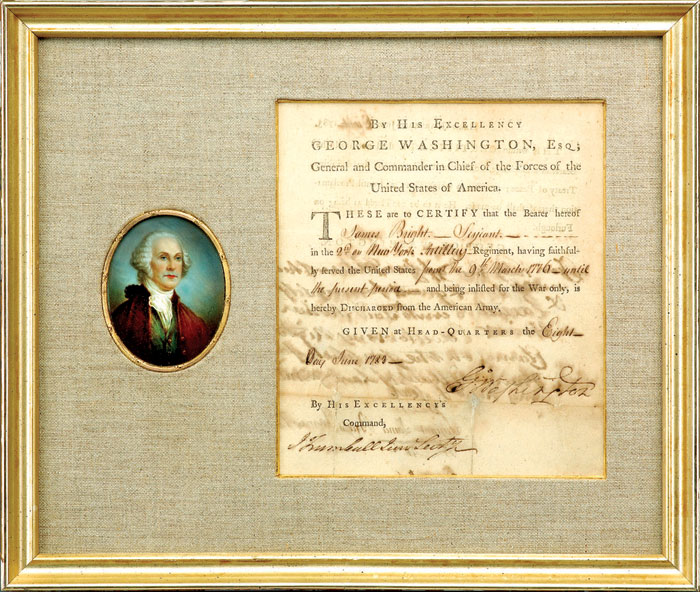 By His Excellency
GEORGE WASHINGTON, Esq;
General and Commander in Chief of the Forces of the
United States of America.
THESE are to CERTIFY that the Bearer hereof
James Bright Serjeant
in the 2d or New York Artillery Regiment, having faithful-
ly served the United States from the 9th March 1776 until
the present period and being inlisted for the War only, is
hereby Discharged from the American Army.
GIVEN at Head-Quarters the Eight
Day June 1783
G:Washington
By His Excellency's
Command,
J Trumbull Jun Secy